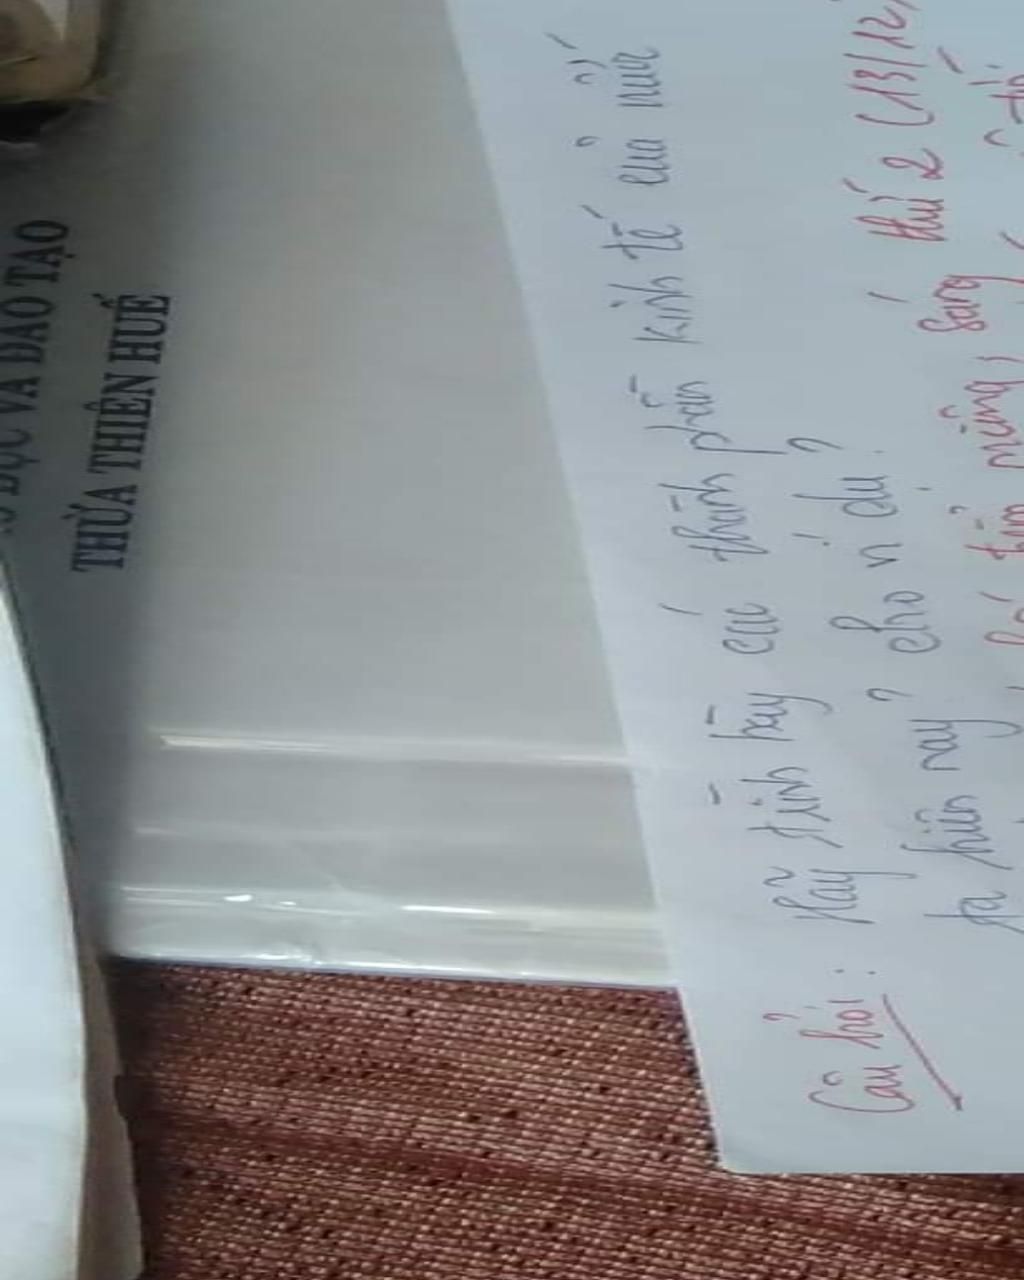 DỤC VÀ ĐÀO TẠO
THỪA THIÊN HUẾ
Câu hỏi: Hãy trình bày các thành phần kinh tế của nước
ta hiện nay? cho ví dụ?
sáng thứ 2 (13/12)